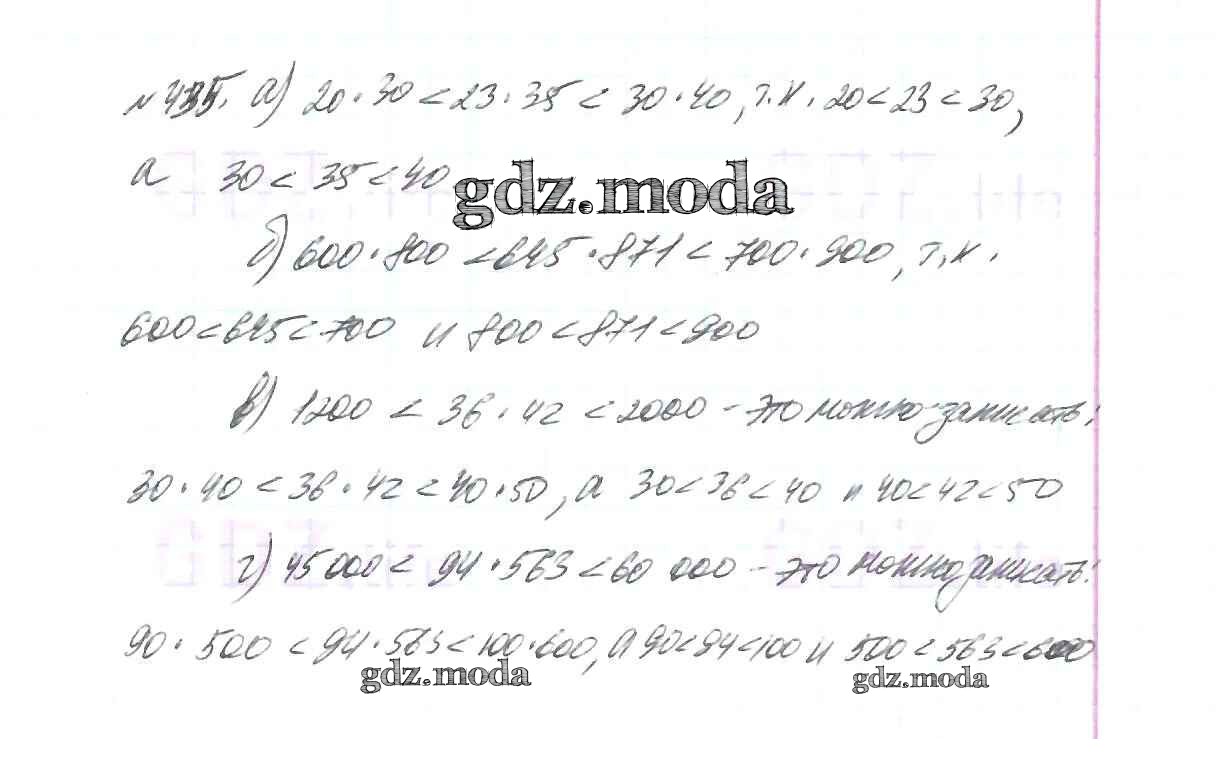 № 435. а) 20·30<23·35< 30·40, т.к. 20<23<30,
а 30< 35<40
gdz.moda
б) 600·800 <645·871< 700·900, т.к.
600<645<700 и 800<871<900
в) 1200 < 36·42 <2000 - это можно записать:
30·40 <36·42<40·50, а 30<36<40 и 40<42<50
г) 45000< 94·563<60 000 - это можно записать:
90·500 <94·563<100·600, а 90<94<100 и 500<563<600
gdz.moda
gdz.moda